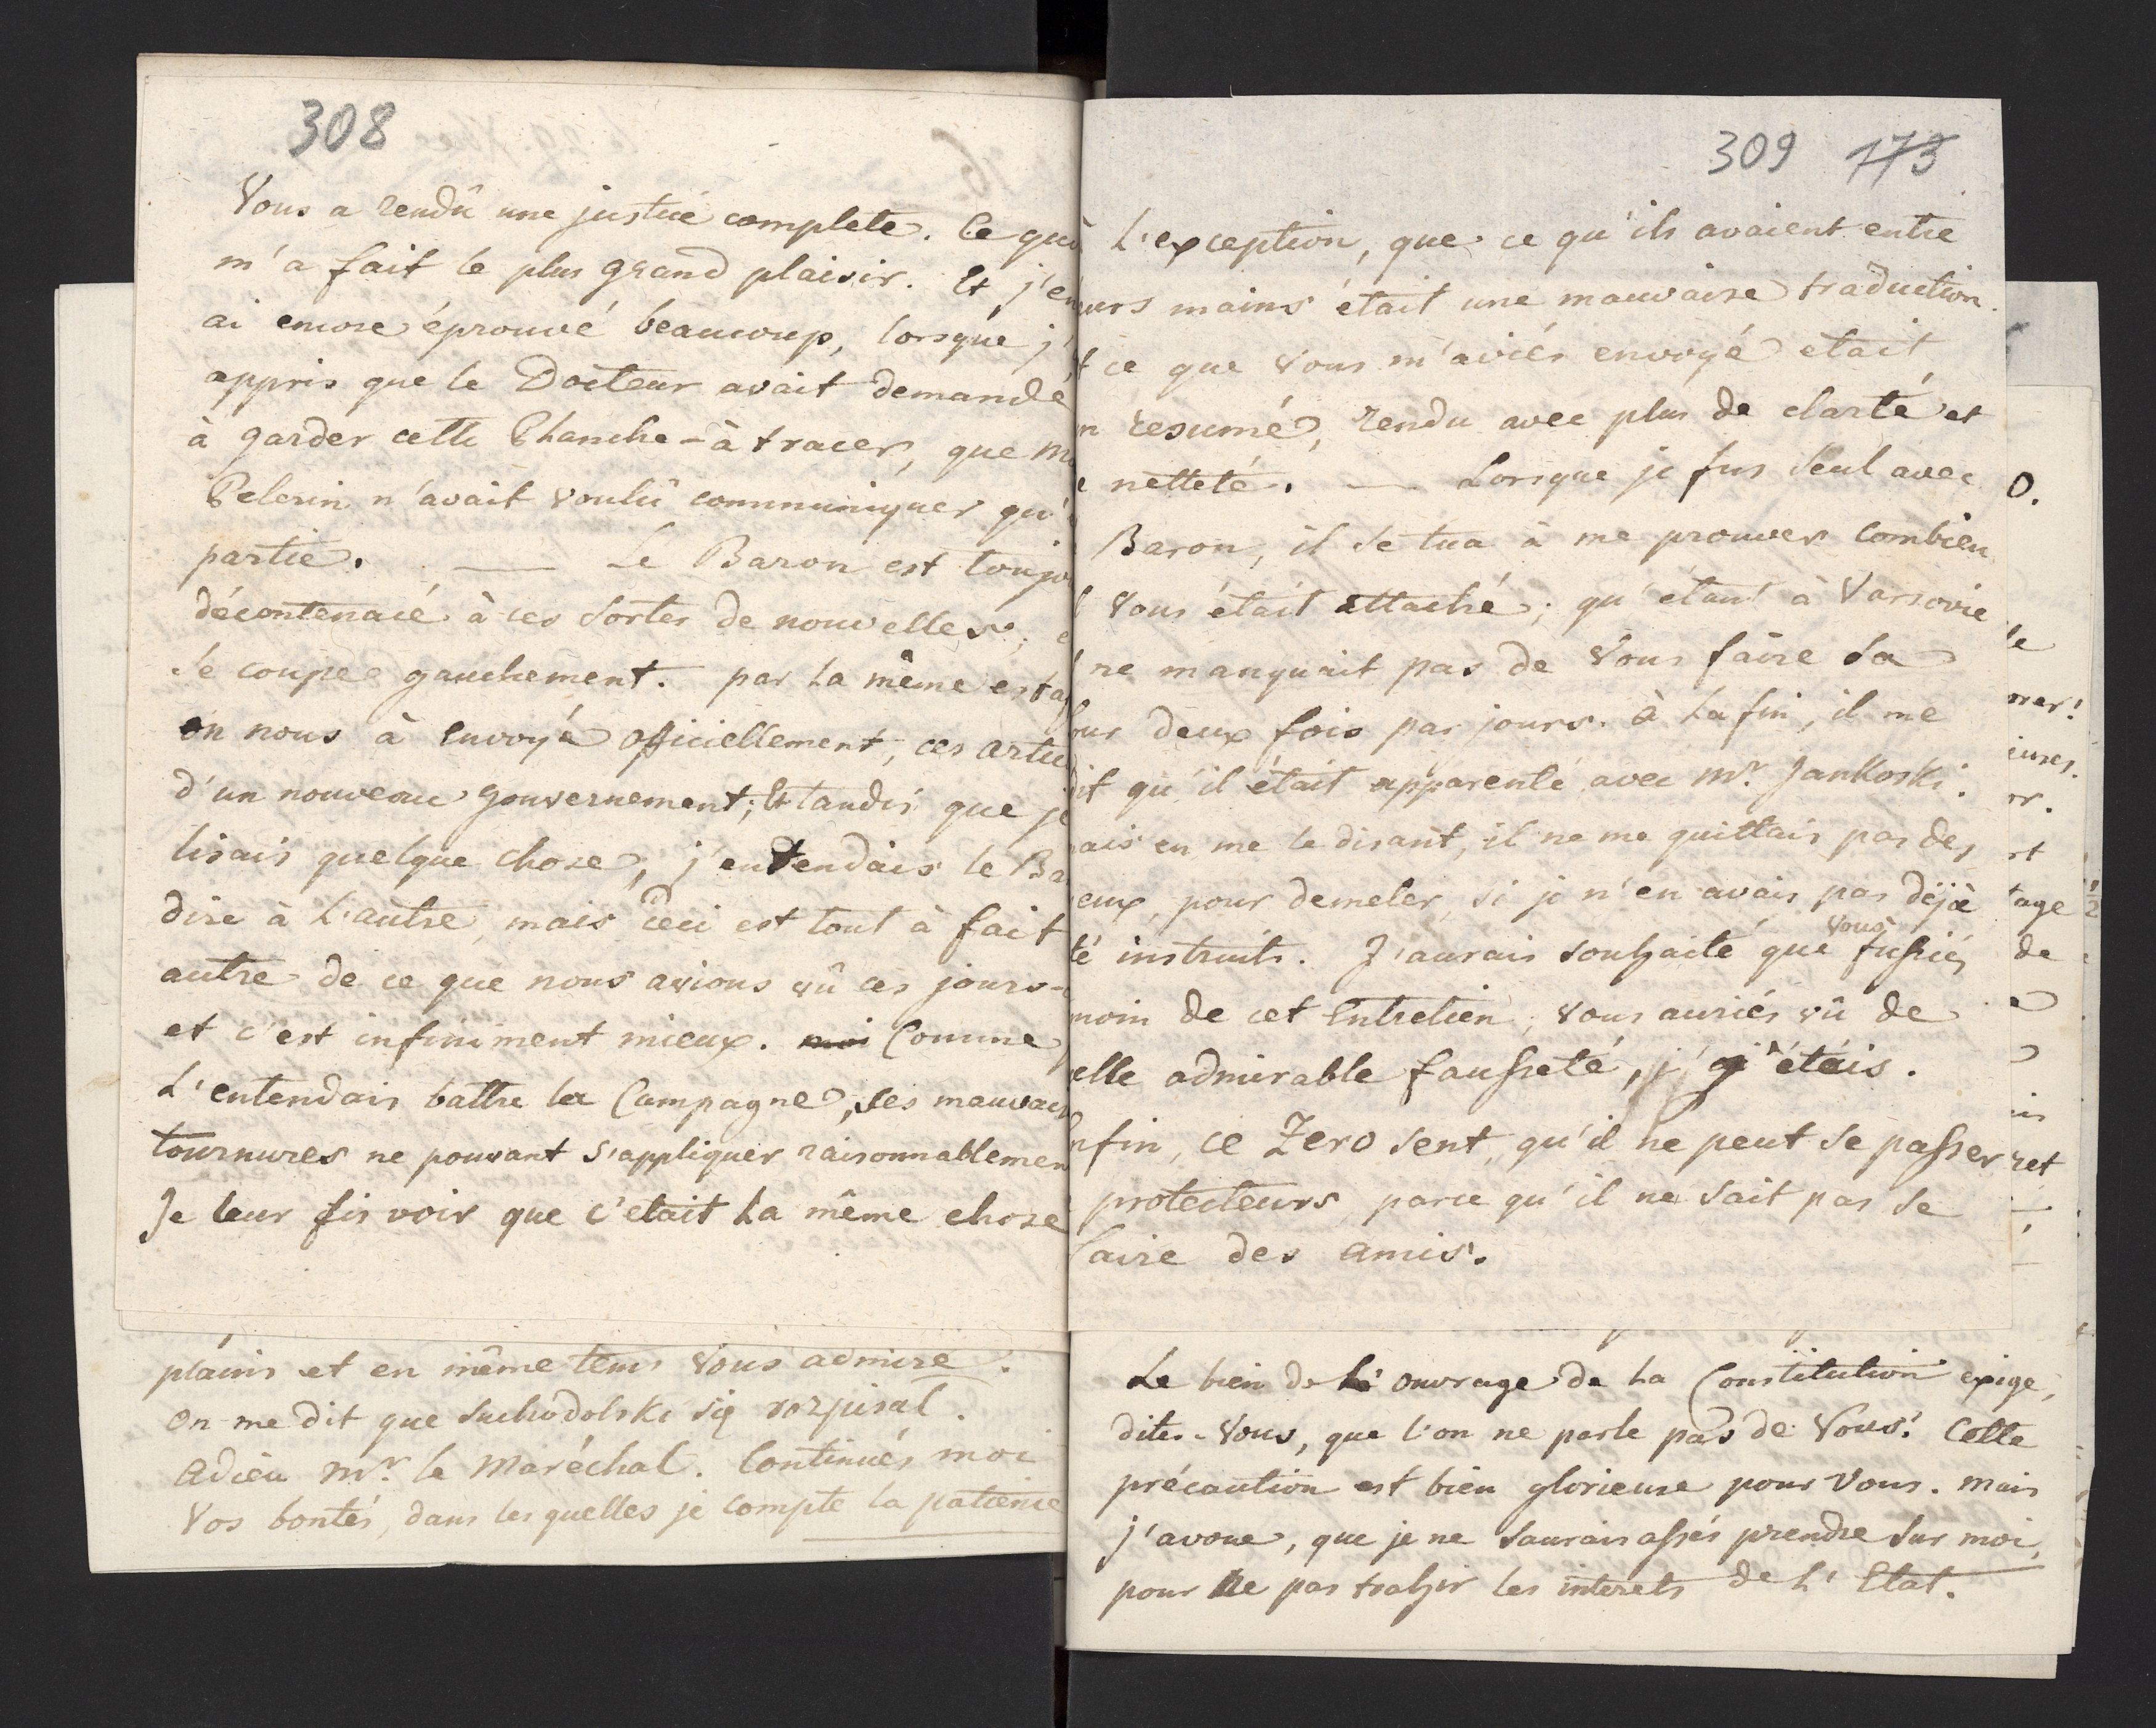 308
Vous a rendû une justice complete. Ce qui
m'a fait le plus grand plaisir. Et j'en
ai encore éprouvé beaucoup, lorsque j'
appris que le Docteur avait demandé
à garder cette Planche-à tracer, que
Pelerin n'avait voulû communiquer qu'
partie. — Le Baron est toujo
décontenacé à ces sortes de nouvelles;
se coupe gauchement. par la même estaf
on nous à envoyé officiellement, ces artic
d'un nouveau gouvernement; Et tandis que je
lisais quelque chose, j'entendais le Ba
dire à l'autre, mais ceci est tout à fait
autre de ce que nous avions vû ces jours-
et c'est infiniment mieux. moi Comme
l'entendais battre la Campagne, ses mauvais
tournures ne pouvant s'appliquer raisonnablemen
Je leur fis voir que c'etait la même chose
plains et en même tems vous admire.
on me dit que Suchodolski się rozpisał.
Adieu Mr. le Maréchal. Continués moi
Vos bontés, dans lesquelles je compte la patience
309 173
L'exception, que ce qu'ils avaient entre
urs mains était une mauvaise traduction.
t ce que vous m'aviés envoyé etait
n resumé, rendu avec plus de clarté et
e netteté. — Lorsque je fus seul avec
Baron, il se tua à me prouver combien
l vous était attaché; qu'étant à Varsovie
ne manquait pas de vous faire sa
our deux fois par jours. à la fin, il me
dit qu'il était apparenté avec Mr. Jankoski.
ais en me le disant, il ne me quittais pas des
eux, pour demeler, si je n'en avais pas déjà
té instruits. J'aurais souhaité que vous fussiés
moin de cet Entretien, vous auriés vû de
elle admirable fausseté, j'étais.
nfin, ce Zero sent, qu'il ne peut se passer
protecteurs, parce qu'il ne sait pas se
faire des amis.
Le bien de l'ouvrage de la Constitution exige,
dites-vous, que l'on ne parle pas de Vous! Cette
précaution est bien glorieuse pour Vous. Mais
j'avoue, que je ne saurais assés prendre sur moi,
pour ne pas trahir les interets de l'Etat.